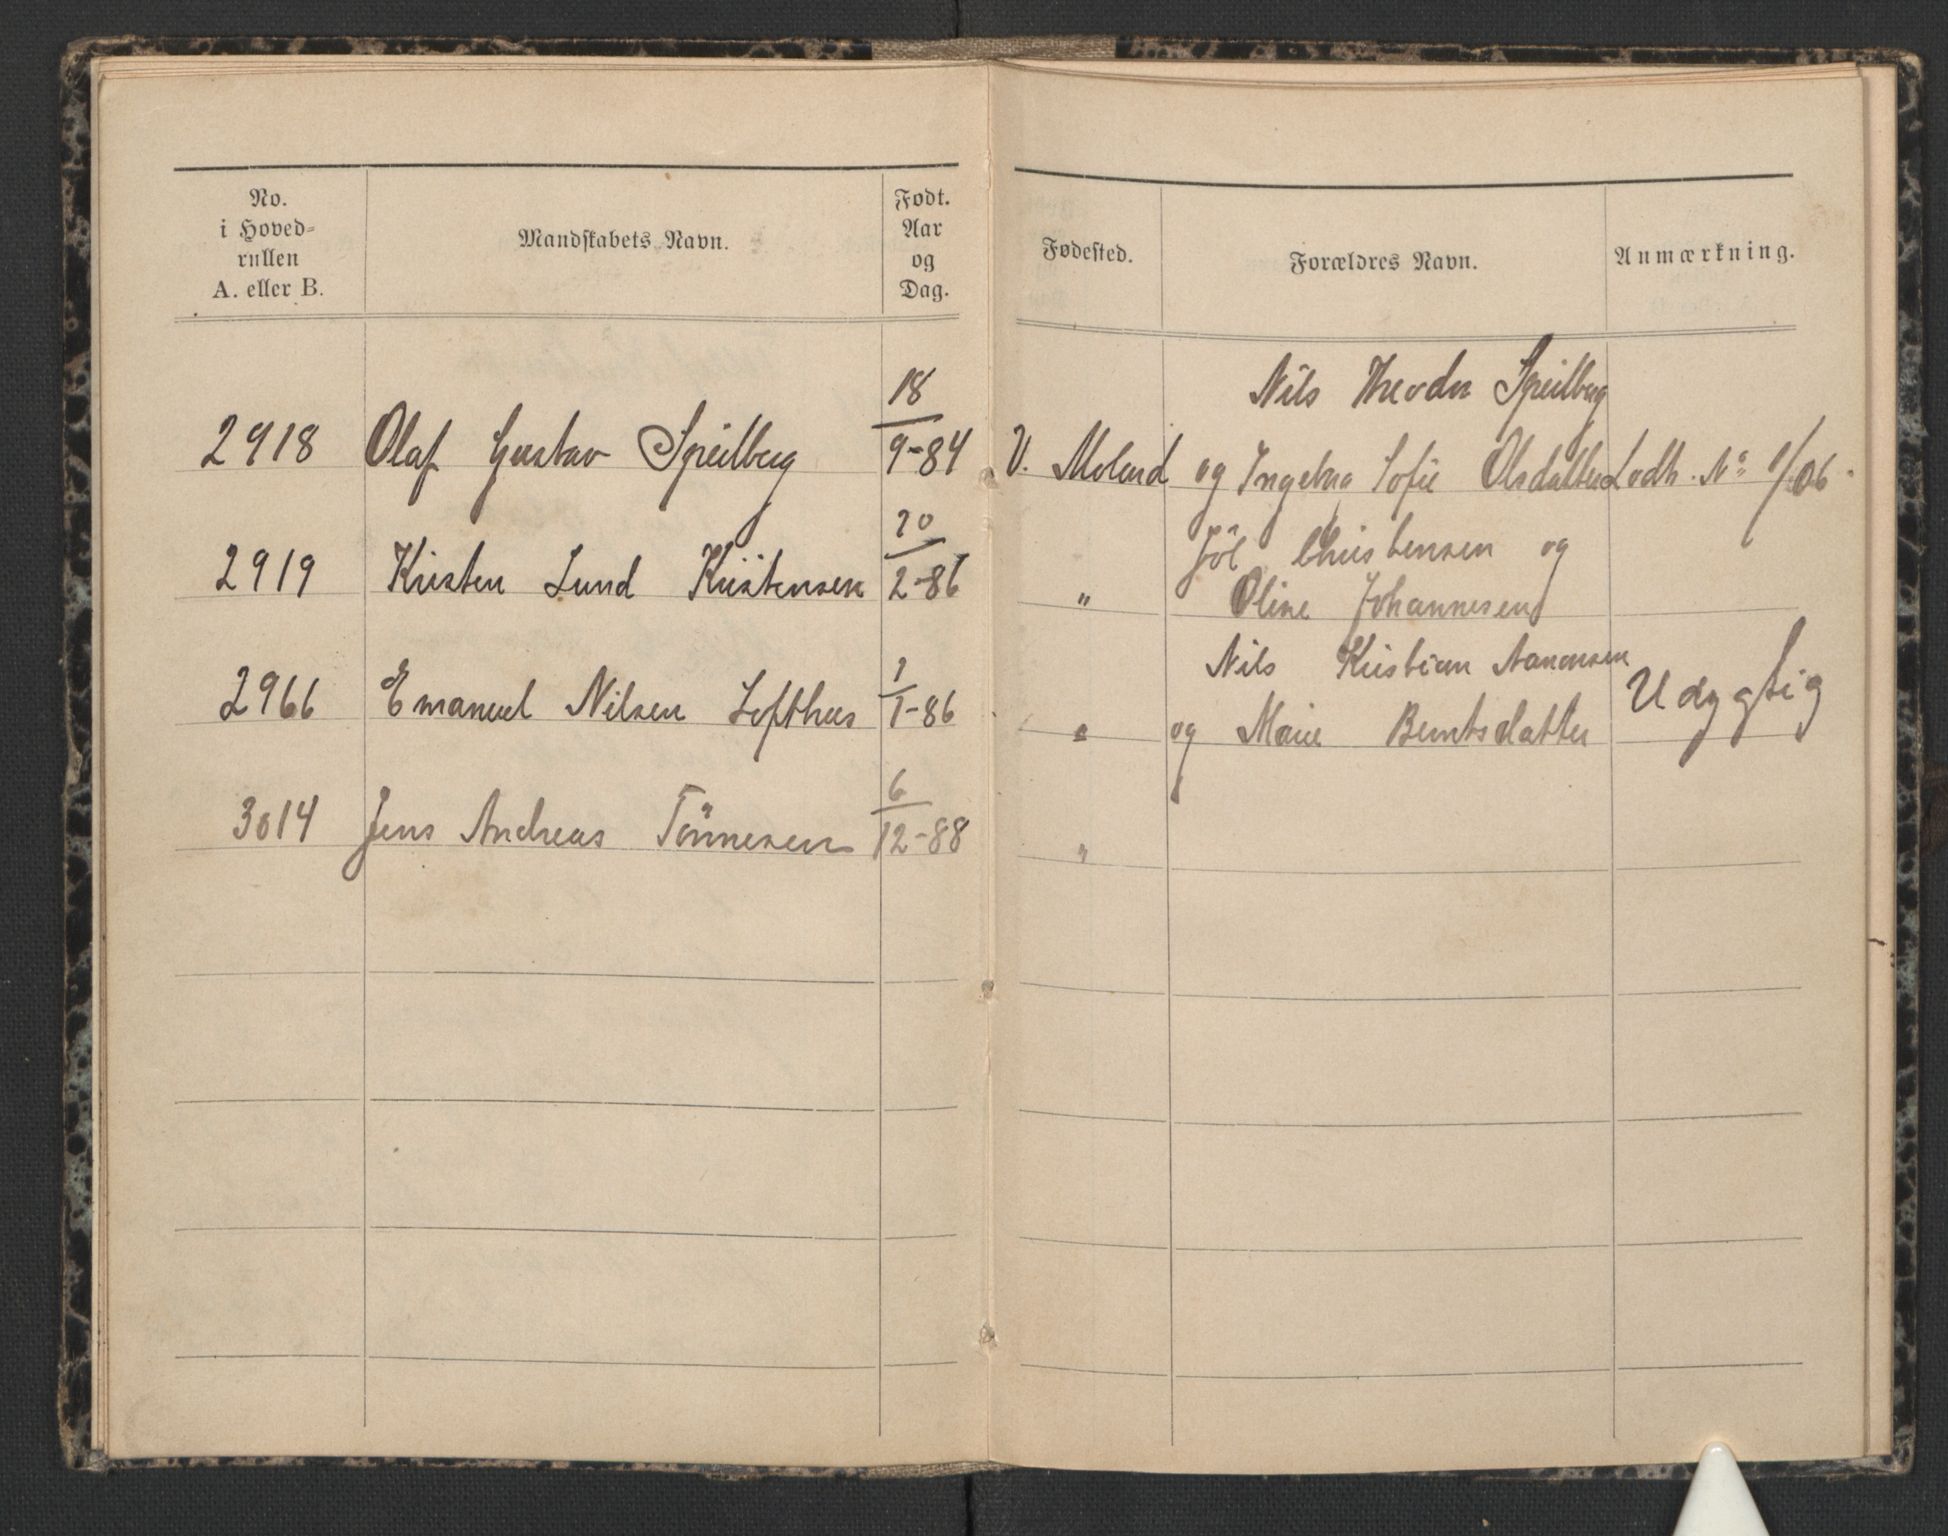 No. i Hoved-rullen A. eller B. | Mandskabets Navn. | Født. Aar og Dag. | Fødested. | Forældres Navn. | Anmærkning.
18 Nils Theodor Speilberg
2918 Olaf Gustav Speilberg 9-84 V. Moland og Ingebor Sofie Olsdatter Lodtr. No 1/06.
20 Jöl Christensen og
2919 Kristen Lund Kristensen 2-86 " Oline Johannesen
1 Nils Kristian Aanonsen
2966 Emanuel Nilsen Lofthus 1-86 " og Marie Berntsdatter Udygtig
6
3014 Jens Andreas Tönnesen 12-88 "